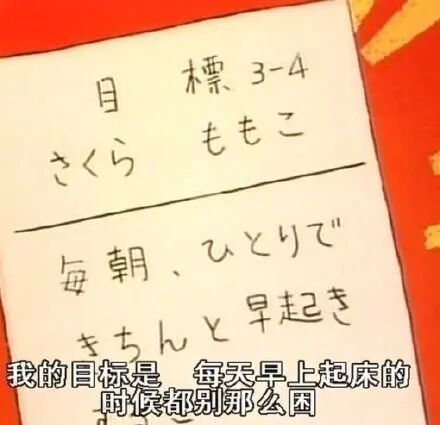 目 標 3-4
さくら ももこ
毎朝、ひとりで
きちんと早起き
我的目标是 每天早上起床的
时候都别那么困